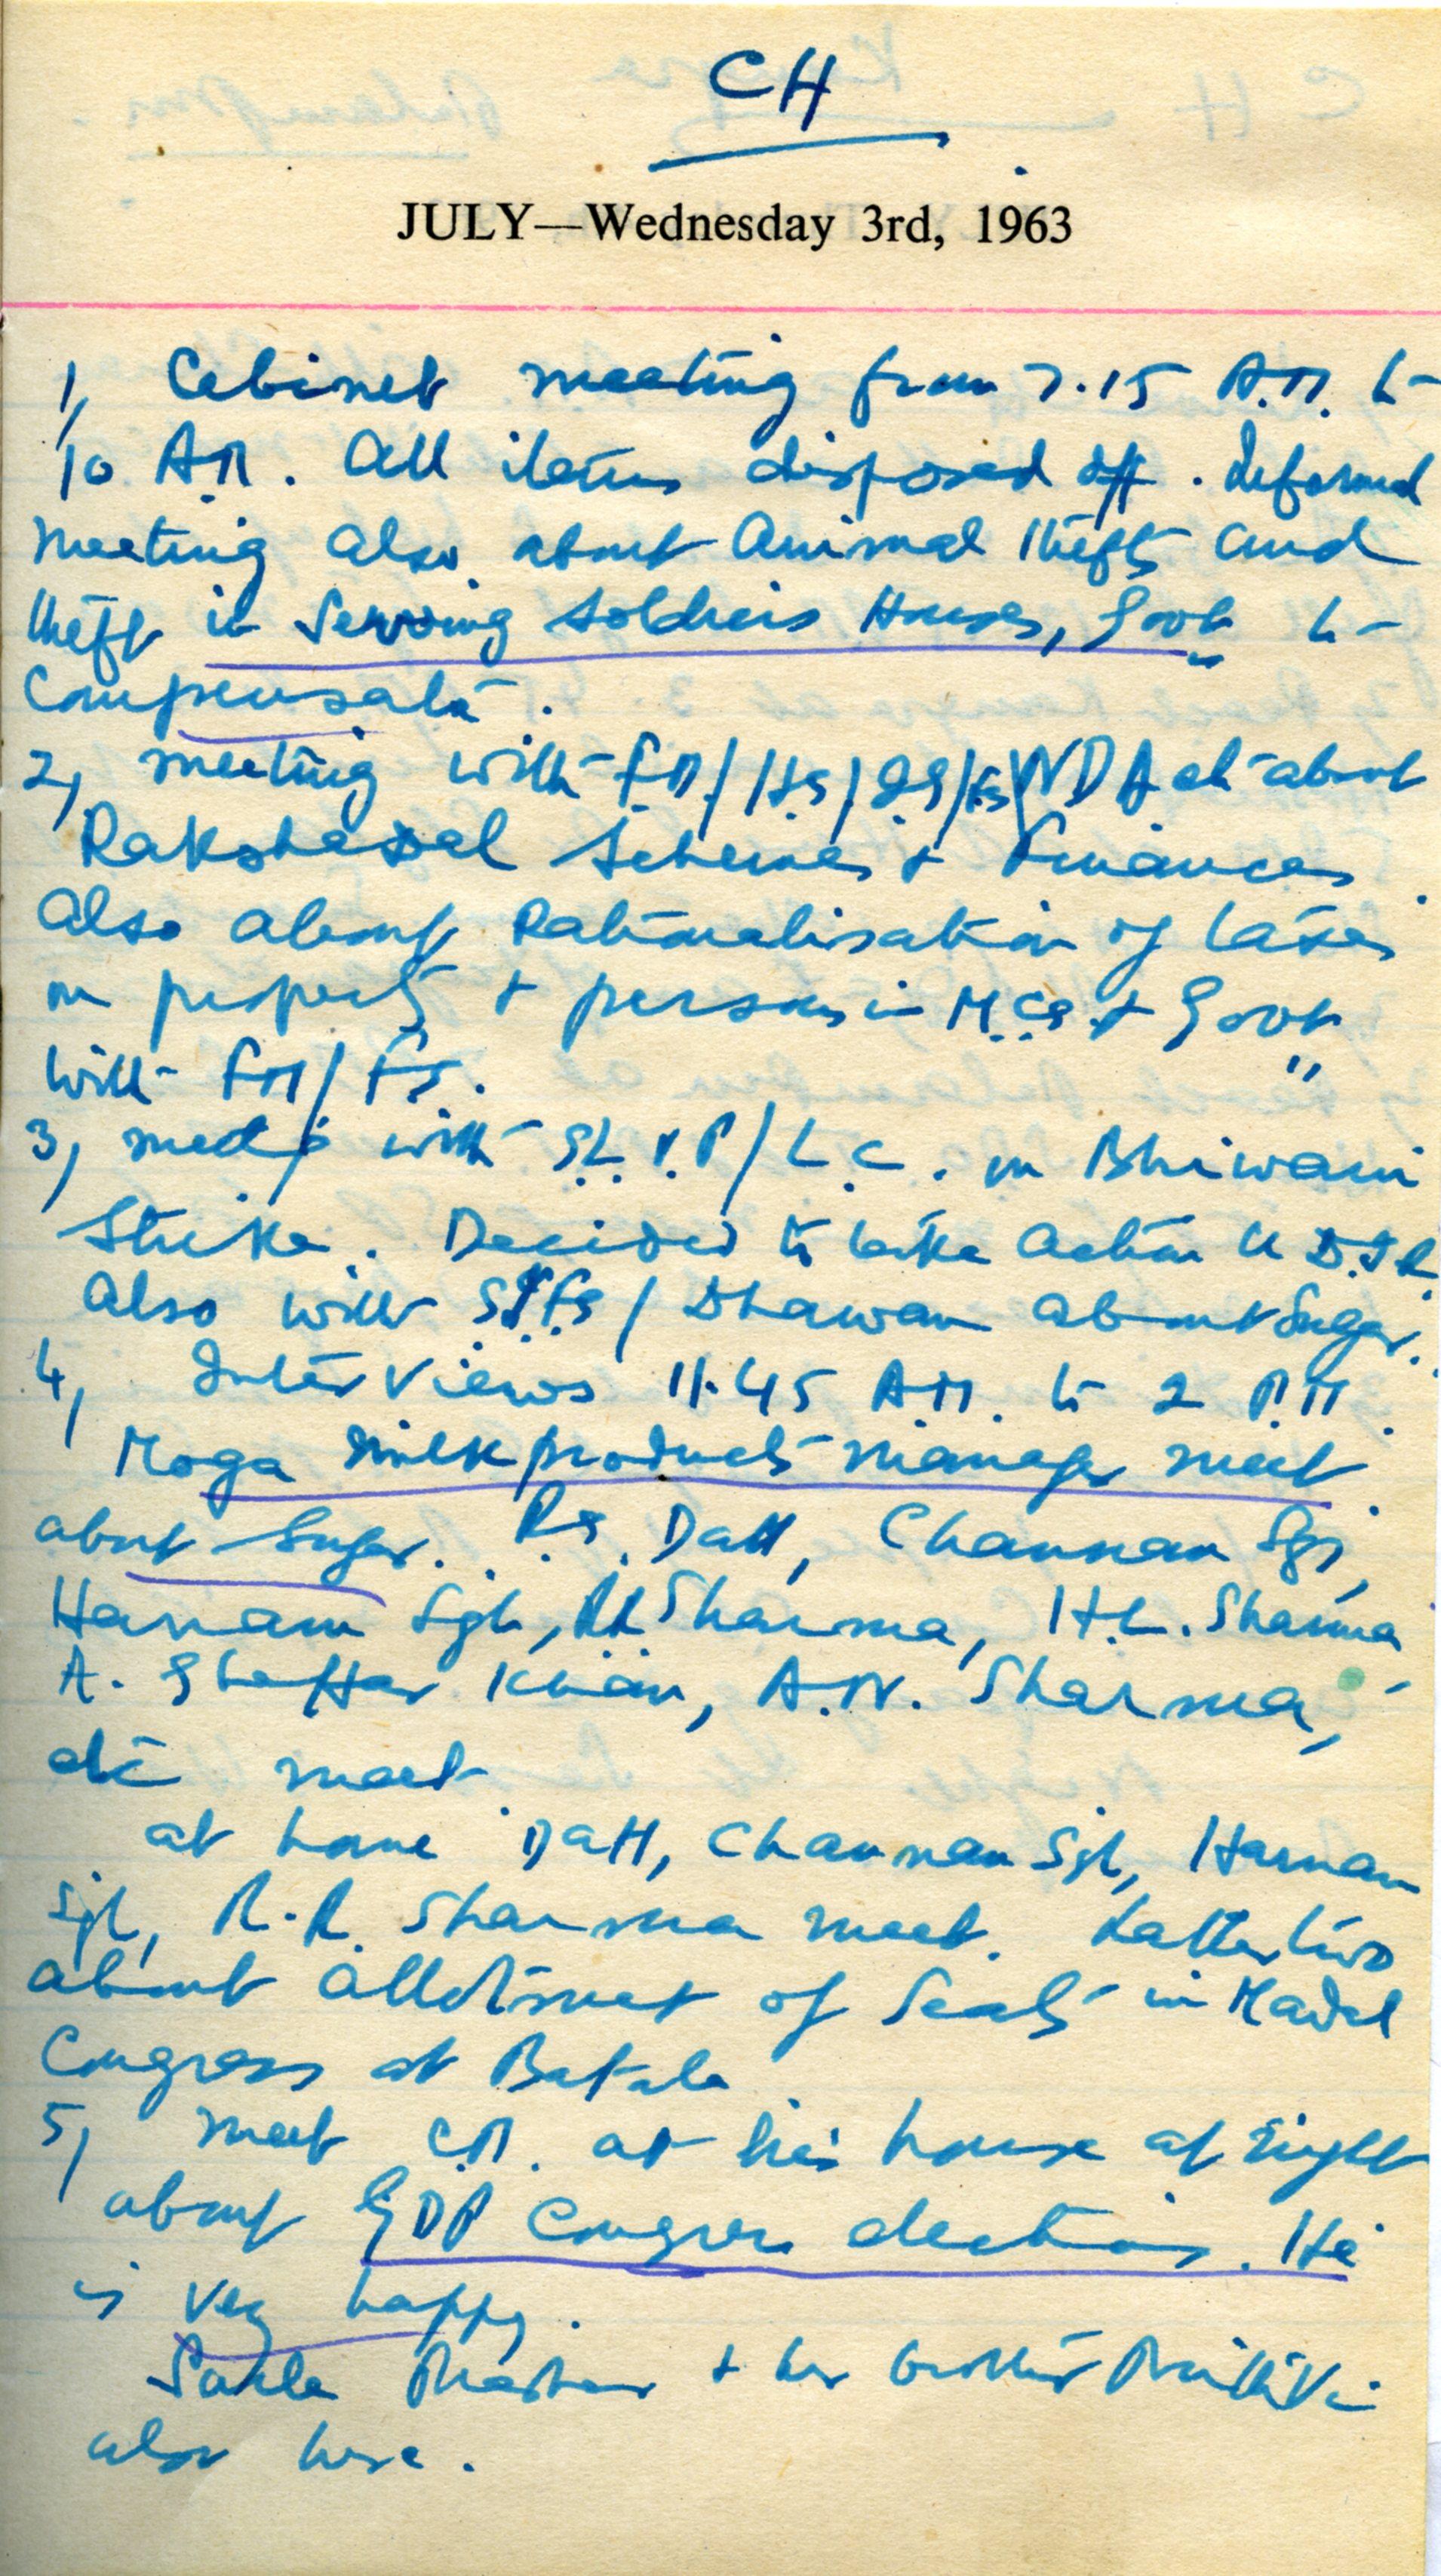 CH
JULY—Wednesday 3rd, 1963
1, Cabinet meeting from 7.15 A.M. to
10 A.M. All items disposed off. Informed
meeting also about Animal thefts and
theft in Serving Soldiers Houses, Govt to
compensate.
2, meeting with F.M./H.S/I.G/F.S/NDA etc about
Rakshadal Schemes + Finances.
Also about Rationalisation of taxes
on property + persons in M.Cs + Govt
with FM/FS.
3, with S.L. &. P/L.C. on Bhiwani
Strike. Decided to take action U D.I.R.
Also with / Dhawan about Sugar.
4, Interviews 11.45 A.M. to 2 P.M.
Moga milk products manager meet
about Sugar. Datt, Channan Sgh,
Harnam Sgh, RR Sharma, H.L. Sharma
A. Ghaffar Khan, A.N. Sharma,
etc meet.
at home Datt, Channan Sgh, Harnam
Sgh, R.R. Sharma meet. Latter two
about allotment of Seats in Mandal
Congress at Batala.
5, meet C.M. at his house at Eight
about GDP Congress elections. He
is very happy.
Sarla + her brother Prithvi
also here.